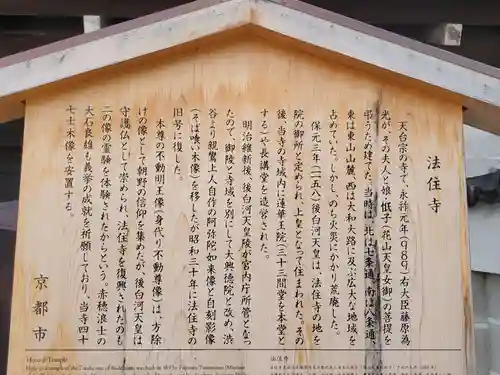 法住寺
天台宗の寺で、永祚元年(九八九)右大臣藤原為
光が、その夫人と娘 忯子(花山天皇女御)の菩提を
弔うため建てた。当時は、北は七条通、南は八条通、
東は東山山麓、西は大和大路に及ぶ広大な地域を
占めていた。しかし、のち火災にかかり荒廃した。
保元三年(一一五八)後白河天皇は、法住寺の地を
院の御所と定められ、上皇となって住まわれた。その
後、当寺の寺域内に蓮華王院(三十三間堂)を本堂と
する一や長講堂を造営された。
明治維新後、後白河天皇陵が宮内庁所管となっ
たので、御陵と寺域を別にして大興徳院と改め、渋
谷より親鸞上人自作の阿弥陀如来像と自刻影像
(そば喰い木像)を移したが昭和三十年に法住寺の
旧号に復した。
本尊の不動明王像(身代り不動尊像)は、方除
けの像として朝野の信仰を集めたが、後白河天皇は
守護仏として崇められ、法住寺を復興されたのも
この像の霊験を体験されたからという。赤穂浪士の
大石良雄も義挙の成就を祈願しており、当寺四十
七士木像を安置する。
京都市
Hoju-ji Temple
法住寺